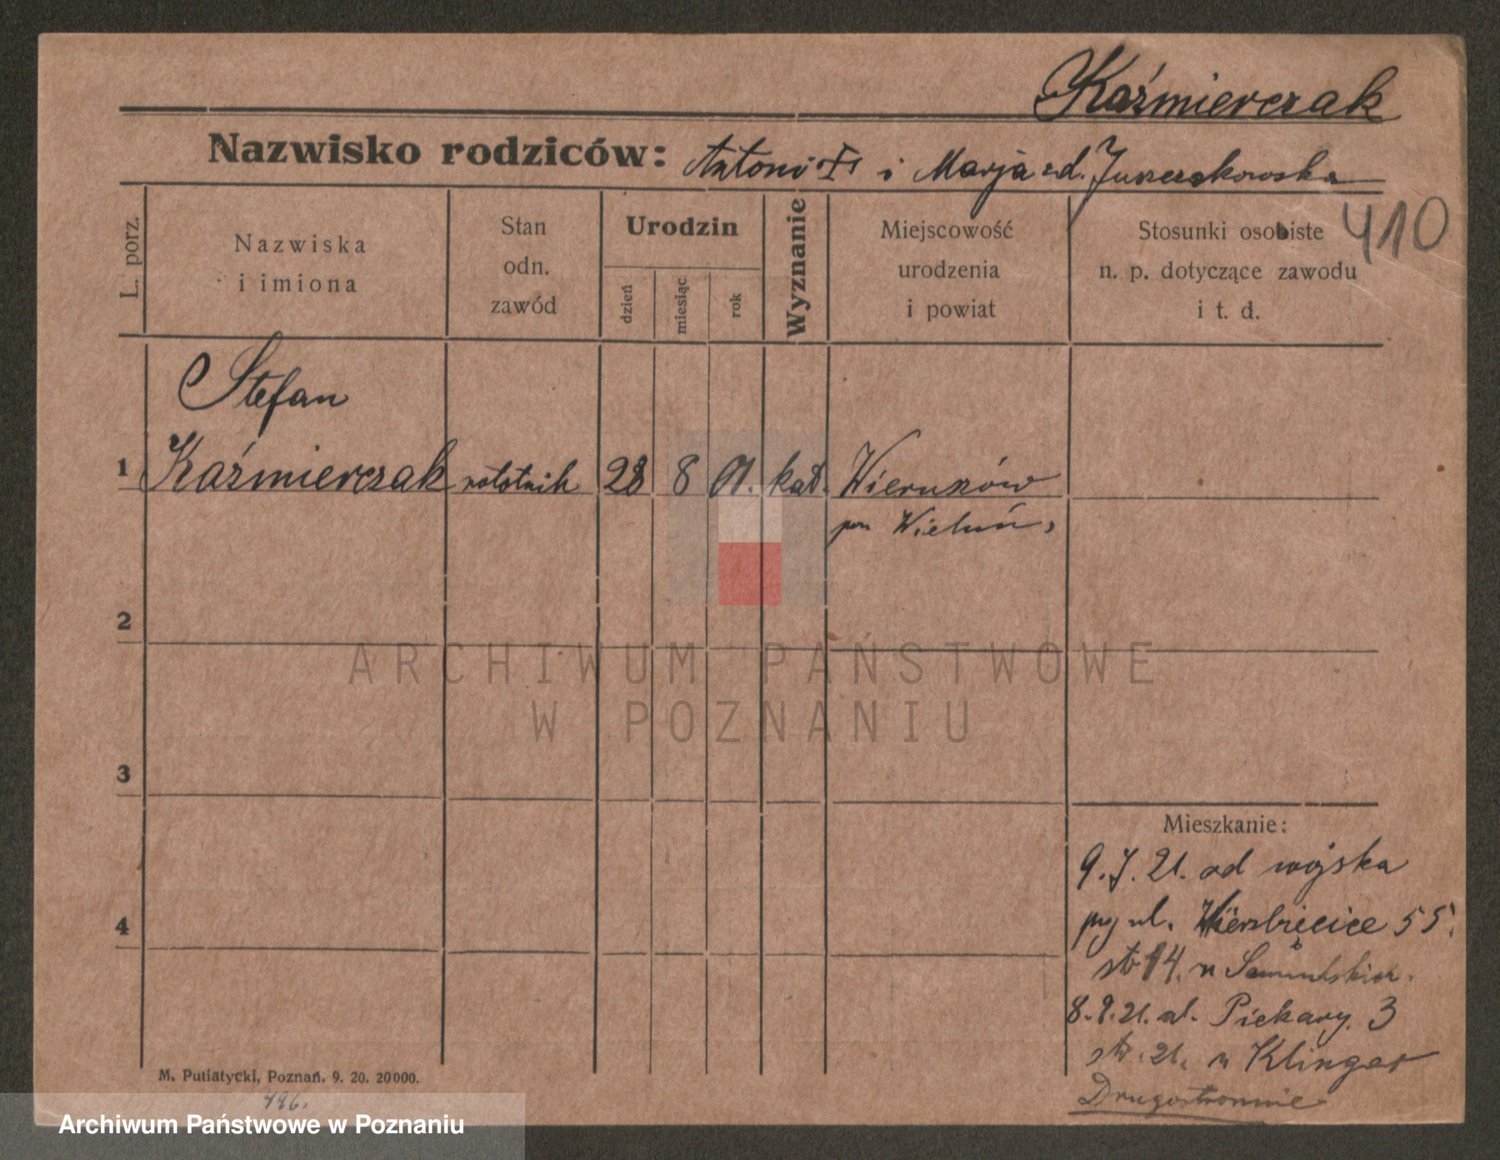 Kaźmierczak
Nazwisko rodziców: Antoni i Marja zd. Juszczakowska
410
L. porz.
Nazwiska
i imiona
Stan
odn.
zawód
Urodzin
dzień
miesiąc
rok
Wyznanie
Miejscowość
urodzenia
i powiat
Stosunki osobiste
n. p. dotyczące zawodu
i t. d.
Stefan
1 Kaźmierczak robotnik 28 8 01. kat. Wieruszów
pow Wieluń
2
ARCHIWUM PAŃSTWOWE
W POZNANIU
3
4
Mieszkanie:
9.7.21. od wojska
ul. Wierzbięcice 55.
14. u
8.9.21. ul. Piekary 3
21. u Klinger
Drugostronnie
M. Putiatycki, Poznań. 9. 20. 20000.
Archiwum Państwowe w Poznaniu